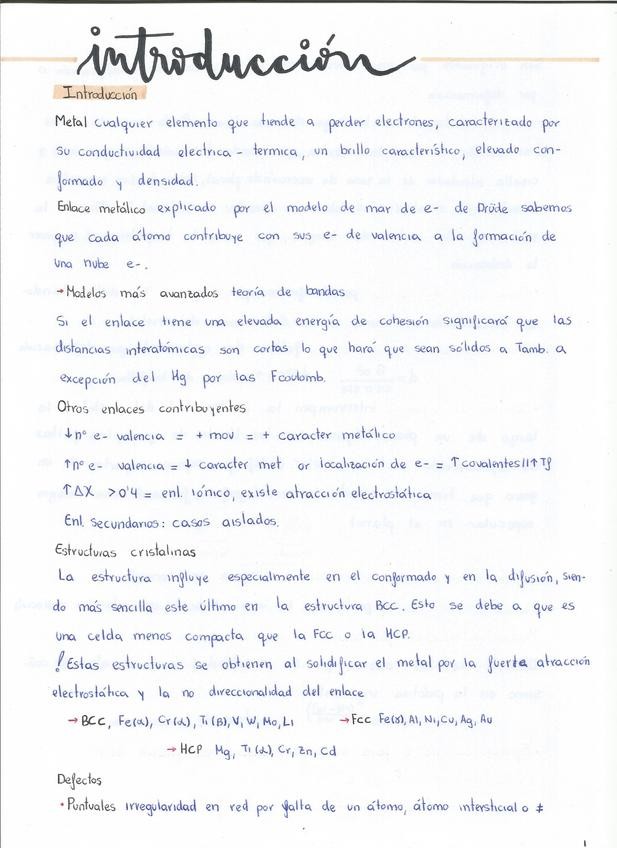 introducción
Introducción
Metal cualquier elemento que tiende a perder electrones, caracterizado por
su conductividad electrica - termica, un brillo característico, elevado con-
formado y densidad.
Enlace metálico explicado por el modelo de mar de e- de Dröde sabemos
que cada átomo contribuye con sus e- de valencia a la formación de
una nube e-.
→ Modelos más avanzados teoría de bandas
Si el enlace tiene una elevada energía de cohesión significará que las
distancias interatómicas son cortas lo que hará que sean sólidos a Tamb. a
excepción del Hg por las Fcoulomb.
Otros enlaces contribuyentes
↓nº e- valencia = + mov = + caracter metálico
↑nº e- valencia = ↓ caracter met or localización de e- = ↑covalentes//↑Tf
↑ΔX >0'4 = enl. iónico, existe atracción electrostática
Enl. secundarios: casos aislados.
Estructuras cristalinas
La estructura influye especialmente en el conformado y en la difusión, sien-
do más sencilla este último en la estructura BCC. Esto se debe a que es
una celda menos compacta que la FCC o la HCP.
! Estas estructuras se obtienen al solidificar el metal por la fuerte atracción
electrostática y la no direccionalidad del enlace
→ BCC, Fe(α), Cr(α), Ti(β), V, W, Mo, Li → FCC Fe(γ), Al, Ni, Cu, Ag, Au
→ HCP Mg, Ti(α), Cr, Zn, Cd
Defectos
• Puntuales irregularidad en red por falta de un átomo, átomo intersticial o ≠
1